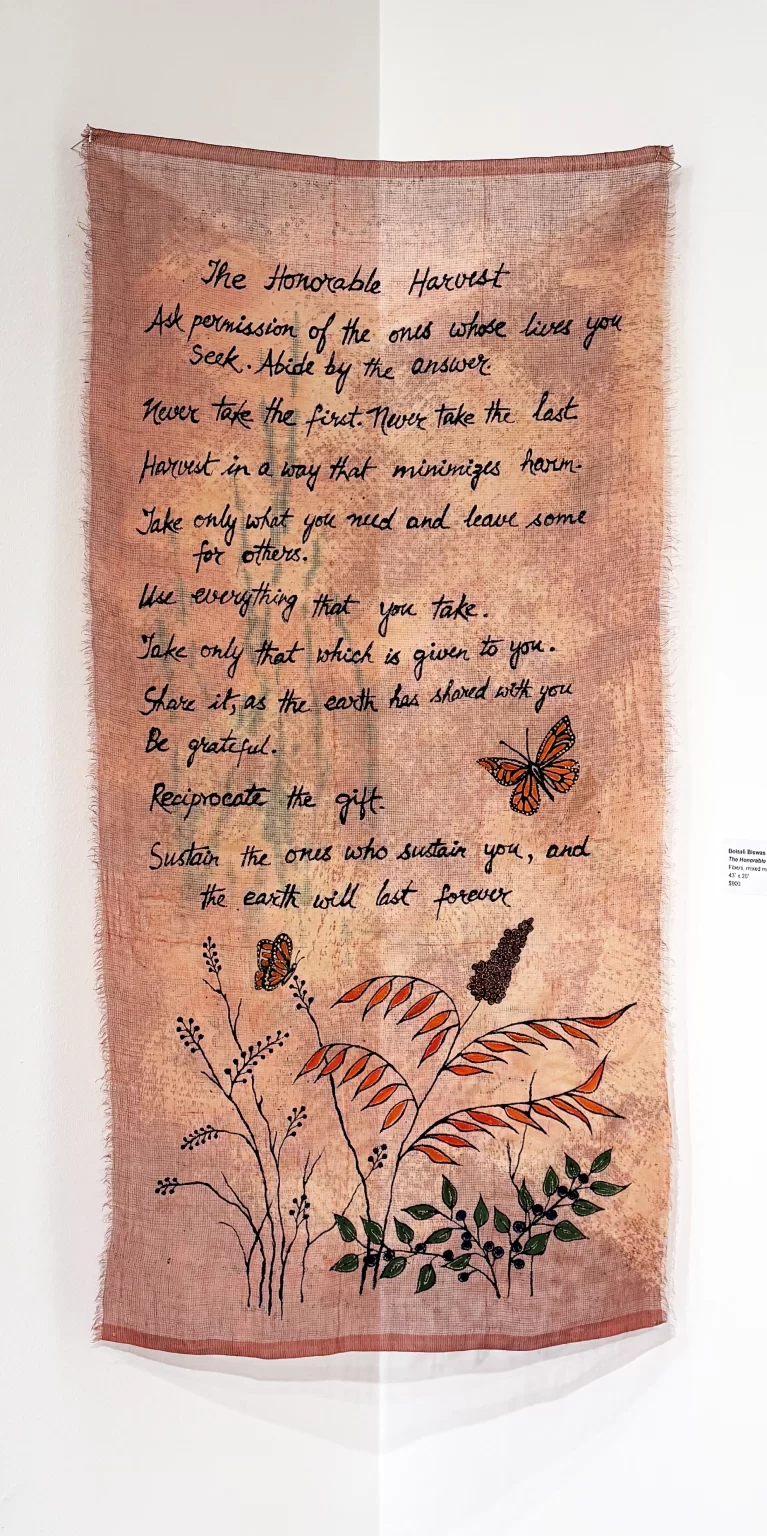 The Honorable Harvest
Ask permission of the ones whose lives you
Seek. Abide by the answer.
Never take the first. Never take the last.
Harvest in a way that minimizes harm.
Take only what you need and leave some
for others.
Use everything that you take.
Take only that which is given to you.
Share it, as the earth has shared with you
Be grateful.
Reciprocate the gift.
Sustain the ones who sustain you, and
the earth will last forever
Boisali Biswas
The Honorable
Fibers, mixed m
43" x 20"
$900